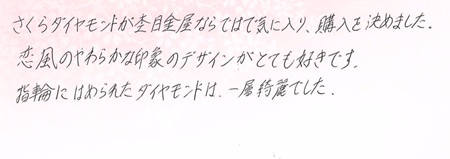 さくらダイヤモンドが杢目金屋ならではで気に入り、購入を決めました。
恋風のやわらかな印象のデザインがとても好きです。
指輪にはめられたダイヤモンドは、一層綺麗でした。